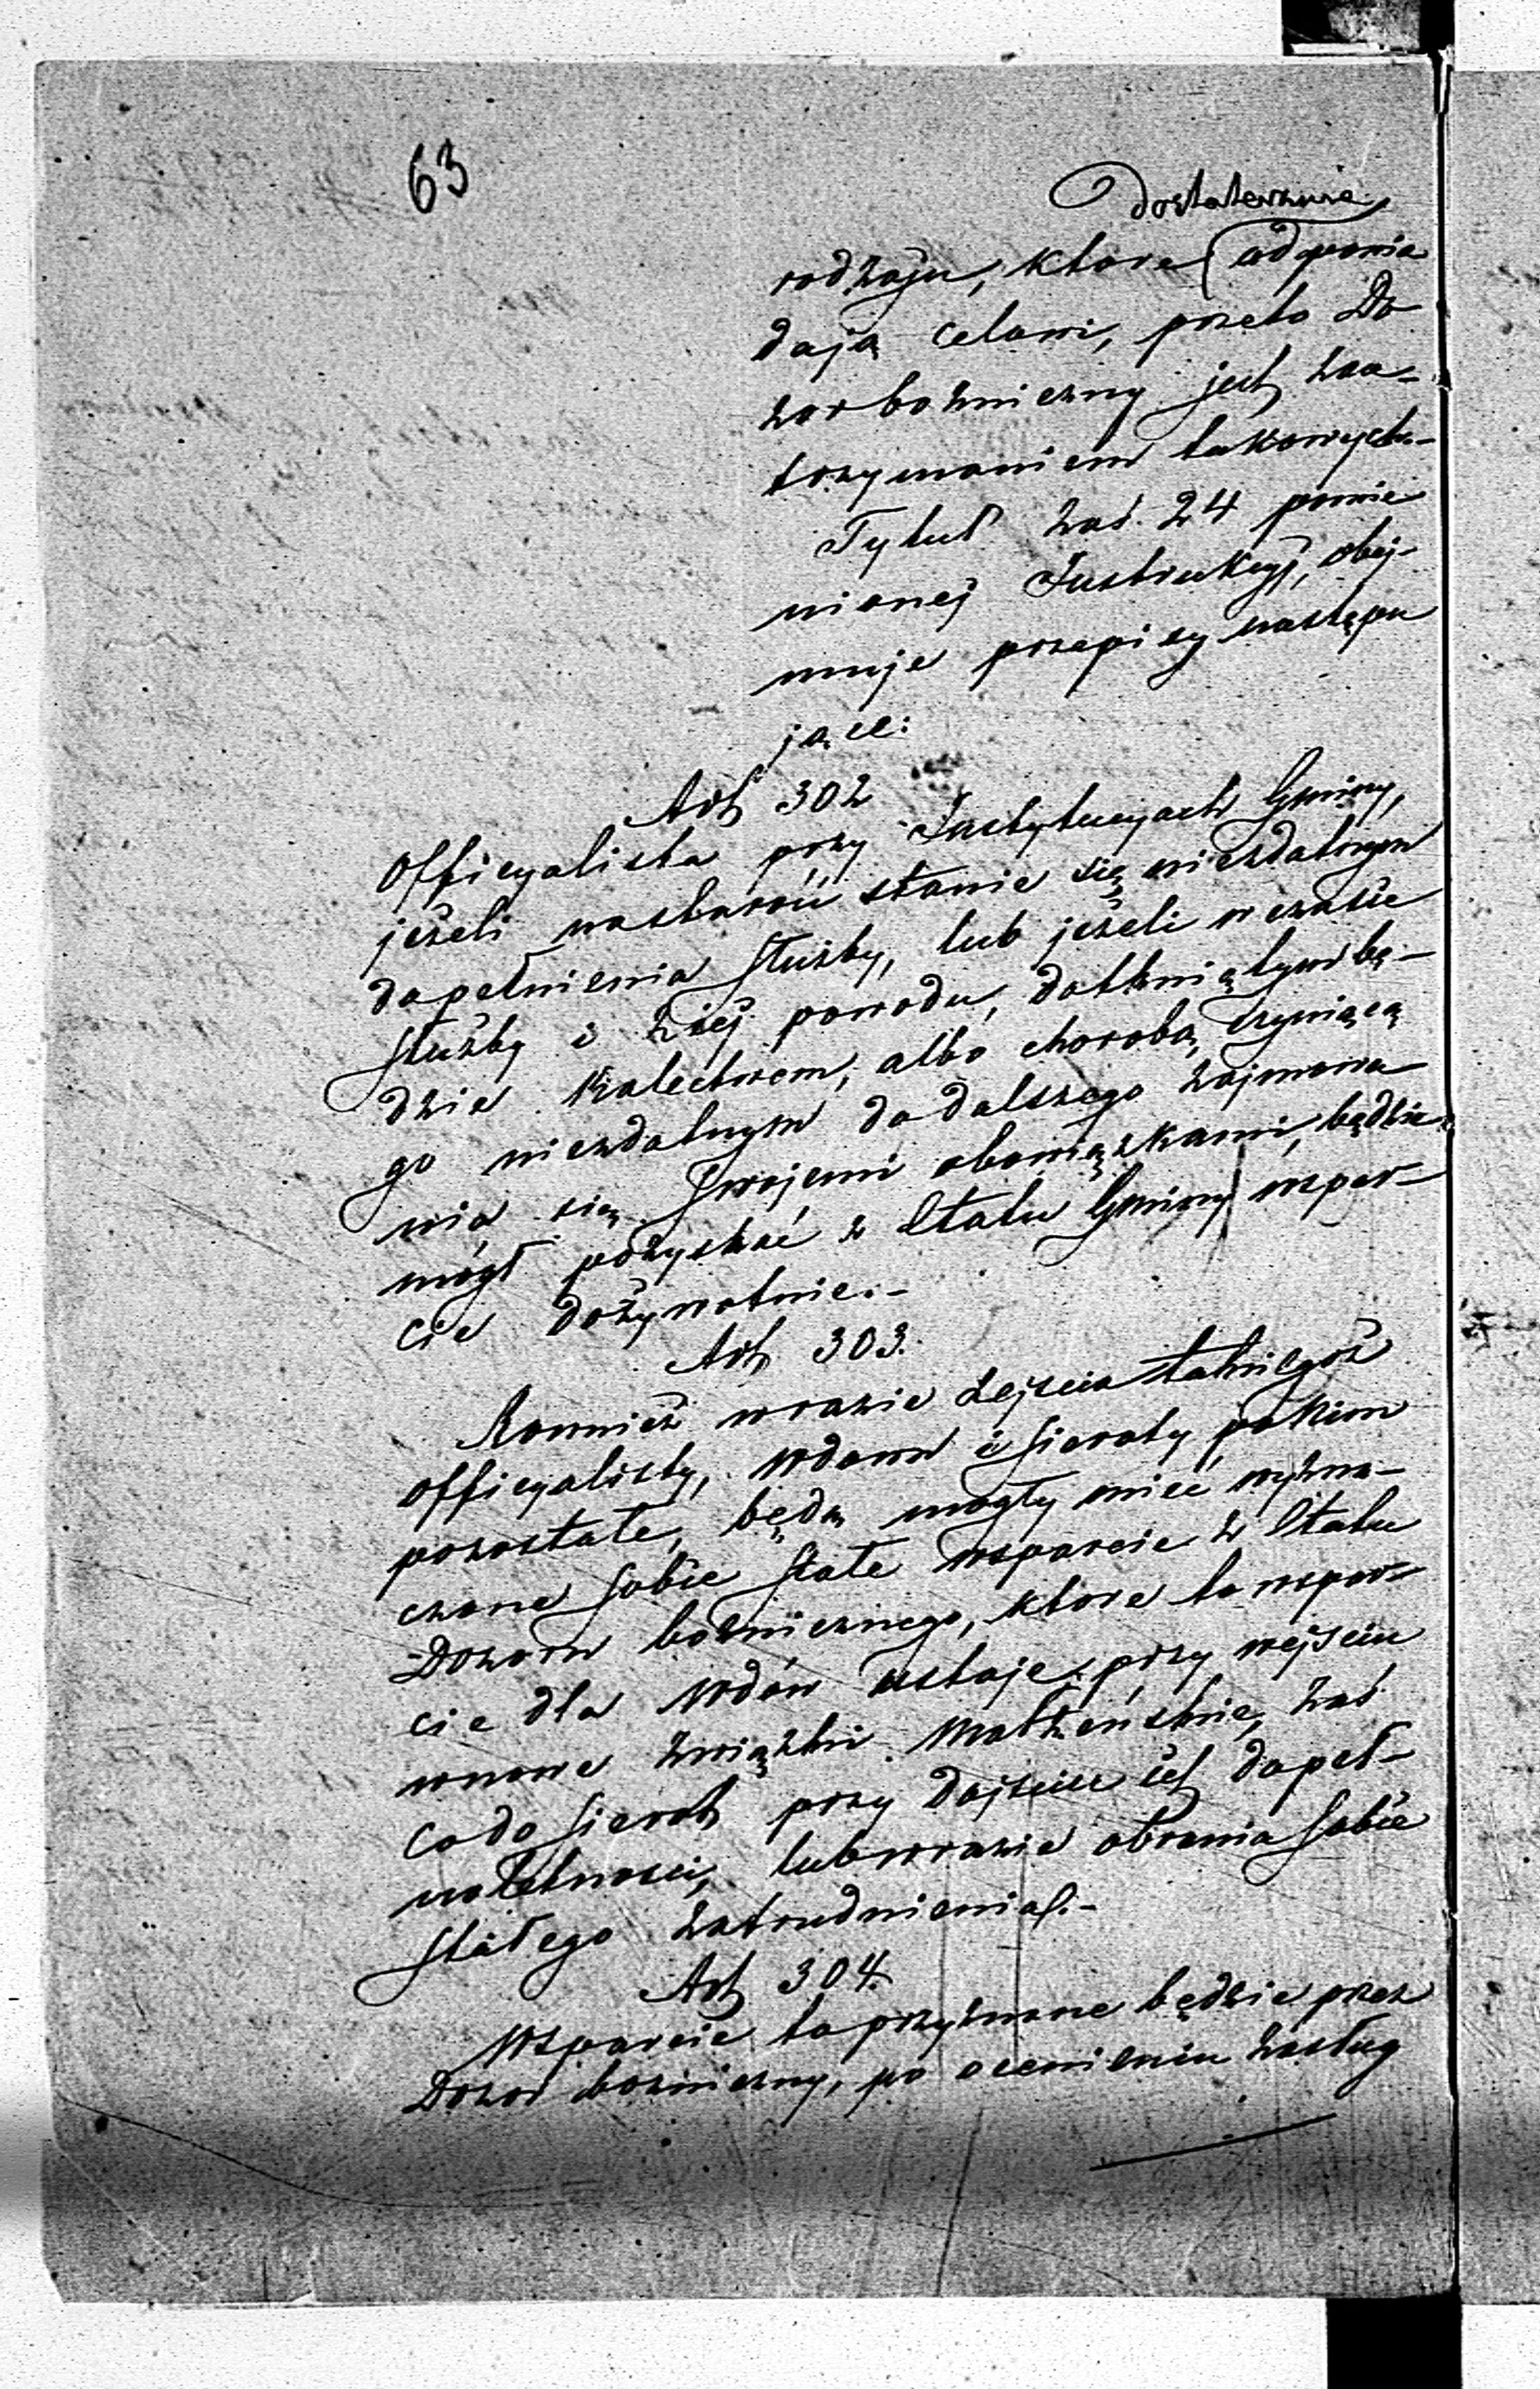 63
dostatecznie
rodzaju, które odpowia
dają celowi, przeto Do
zór bożniczny jest zaa-
trzymaniem takowych.-
Tytuł zaś 24 pomie
nionej Instrukcyj, obej-
muje przepisy następu
jące:
Art 302
Officyalista przy Instytucyach Gminy,
jeżeli nastarość stanie się niezdatnym
dopełnienia służby, lub jeżeli w czasie
służby i z jej powodu, dotkniętym bę-
dzie kalectwem, albo chorobą czyniącą
go niezdatnym do dalszego zajmowa
nia się swojemi obowiązkami, będzie
mógł pozyskać z Etatu Gminy wspar-
cie dożywotnie.-
Art 303.
Rownież wrazie zejścia takiegoż
officyalisty, wdowa i sieroty po kim
pozostałe, będą mogły mieć wyzna-
czone sobie stałe wsparcie z Etatu
Dozoru bożnicznego, które to wspar-
cie dla wdów ustaje przy wejściu
wnowe związki małżeńskie, zaś
codo sierot przy dojściu ich dopeł-
noletności, lub wrazie obrania sobie
stałego zatrudnienia.-
Art 304.
Wsparcie to przyznane będzie przez
Dozor bożniczny, po ocenieniu zasług